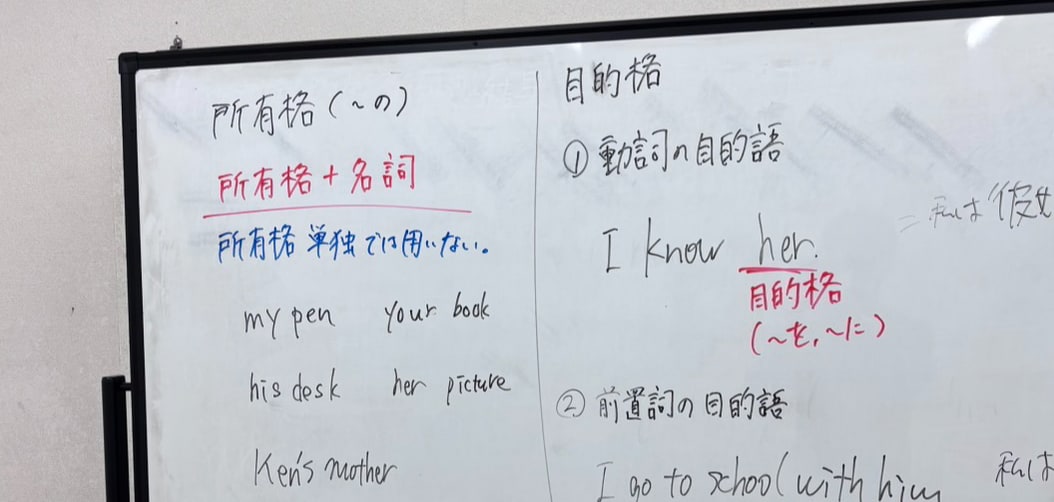 所有格(~の)
所有格+名詞
所有格 単独では用いない。
my pen your book
his desk her picture
Ken's mother
目的格
① 動詞の目的語
I know her.
= 私は 彼女
目的格
(~を,~に)
② 前置詞の目的語
I go to school with him
私は